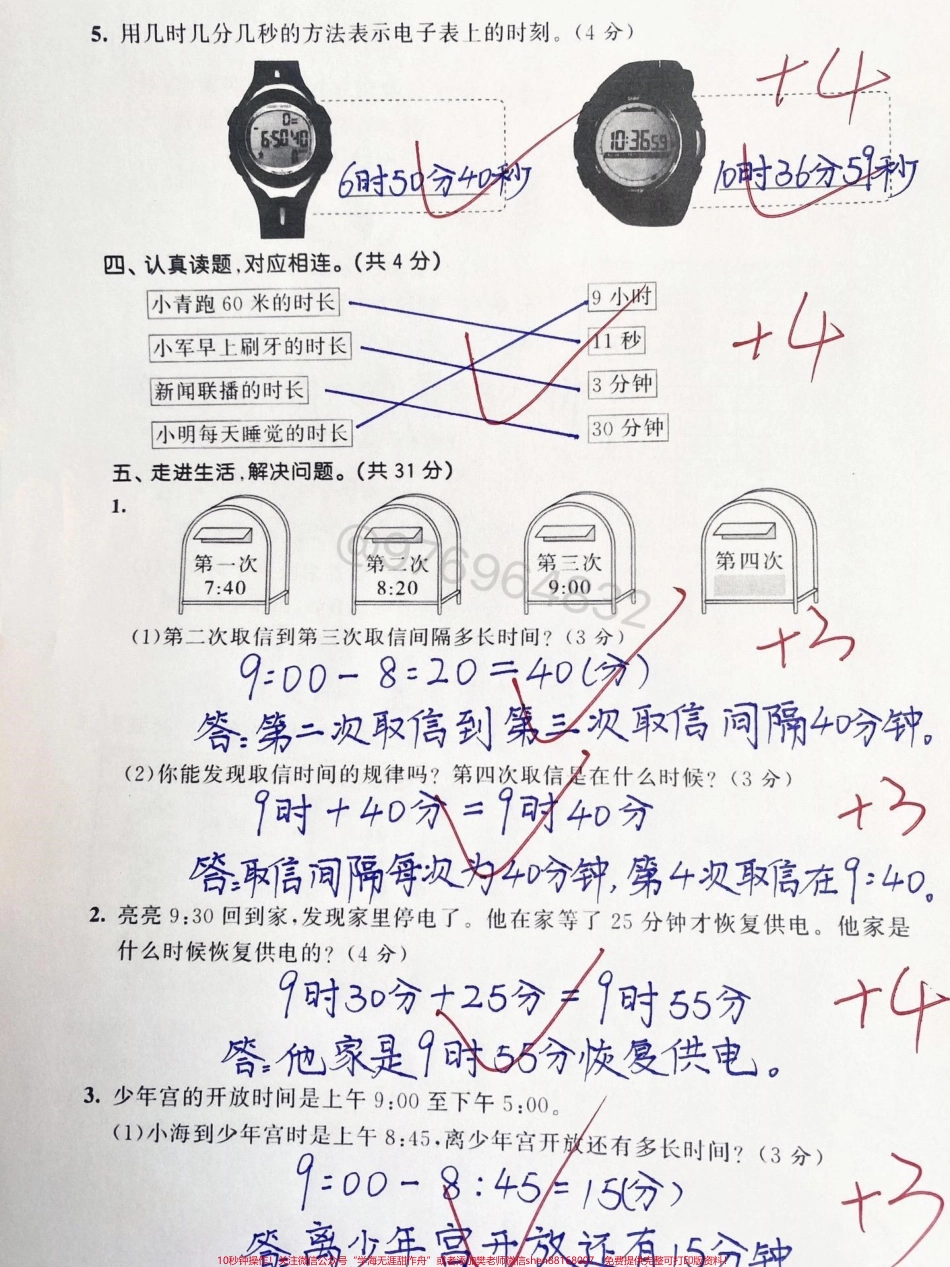 5. 用几时几分几秒的方法表示电子表上的时刻。(4 分)
+4
6:50 40
10:36 59
6时50分40秒
10时36分59秒
四、认真读题,对应相连。(共 4 分)
小青跑 60 米的时长
9 小时
小军早上刷牙的时长
11 秒
+4
新闻联播的时长
3 分钟
小明每天睡觉的时长
30 分钟
五、走进生活,解决问题。(共 31 分)
1.
第一次
7:40
第二次
8:20
第三次
9:00
第四次
@976964632
(1)第二次取信到第三次取信间隔多长时间? (3 分)
+3
9:00-8:20=40(分)
答:第二次取信到第三次取信间隔40分钟。
(2)你能发现取信时间的规律吗? 第四次取信是在什么时候? (3 分)
9时+40分=9时40分
+3
答:取信间隔每次为40分钟,第4次取信在9:40。
2. 亮亮 9:30 回到家,发现家里停电了。他在家等了 25 分钟才恢复供电。他家是
什么时候恢复供电的? (4 分)
9时30分+25分=9时55分
+4
答:他家是9时55分恢复供电。
3. 少年宫的开放时间是上午 9:00 至下午 5:00。
(1)小海到少年宫时是上午 8:45,离少年宫开放还有多长时间? (3 分)
9:00-8:45=15(分)
+3
答离少年宫开放还有15分钟
10秒钟操作!关注微信公众号“学海无涯甜作舟”或者添加樊老师微信shen88158007,免费提供完整可打印版资料!